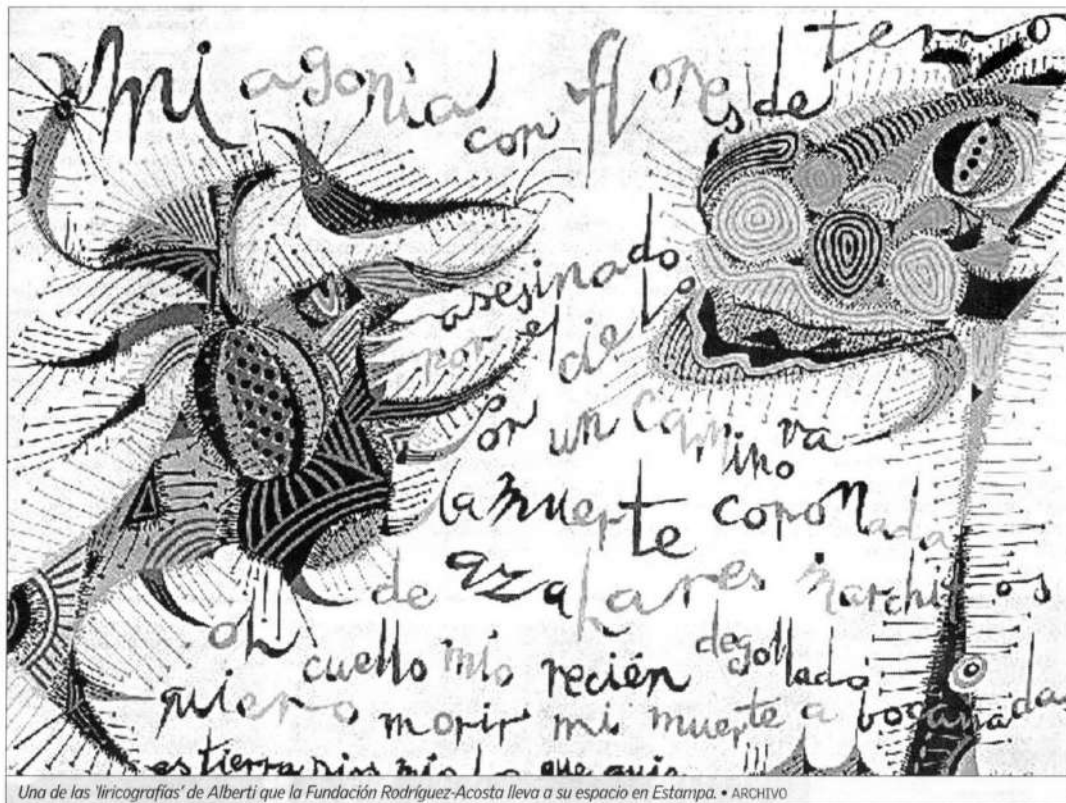 Mi agonía con flores de terno
asesinado
por el cielo
Por un camino va
la muerte coronada
de azahares marchitos
oh cuello mío recién degollado
quiero morir mi muerte a bocanadas
es tierra
Una de las 'liricografías' de Alberti que la Fundación Rodríguez-Acosta lleva a su espacio en Estampa. • ARCHIVO